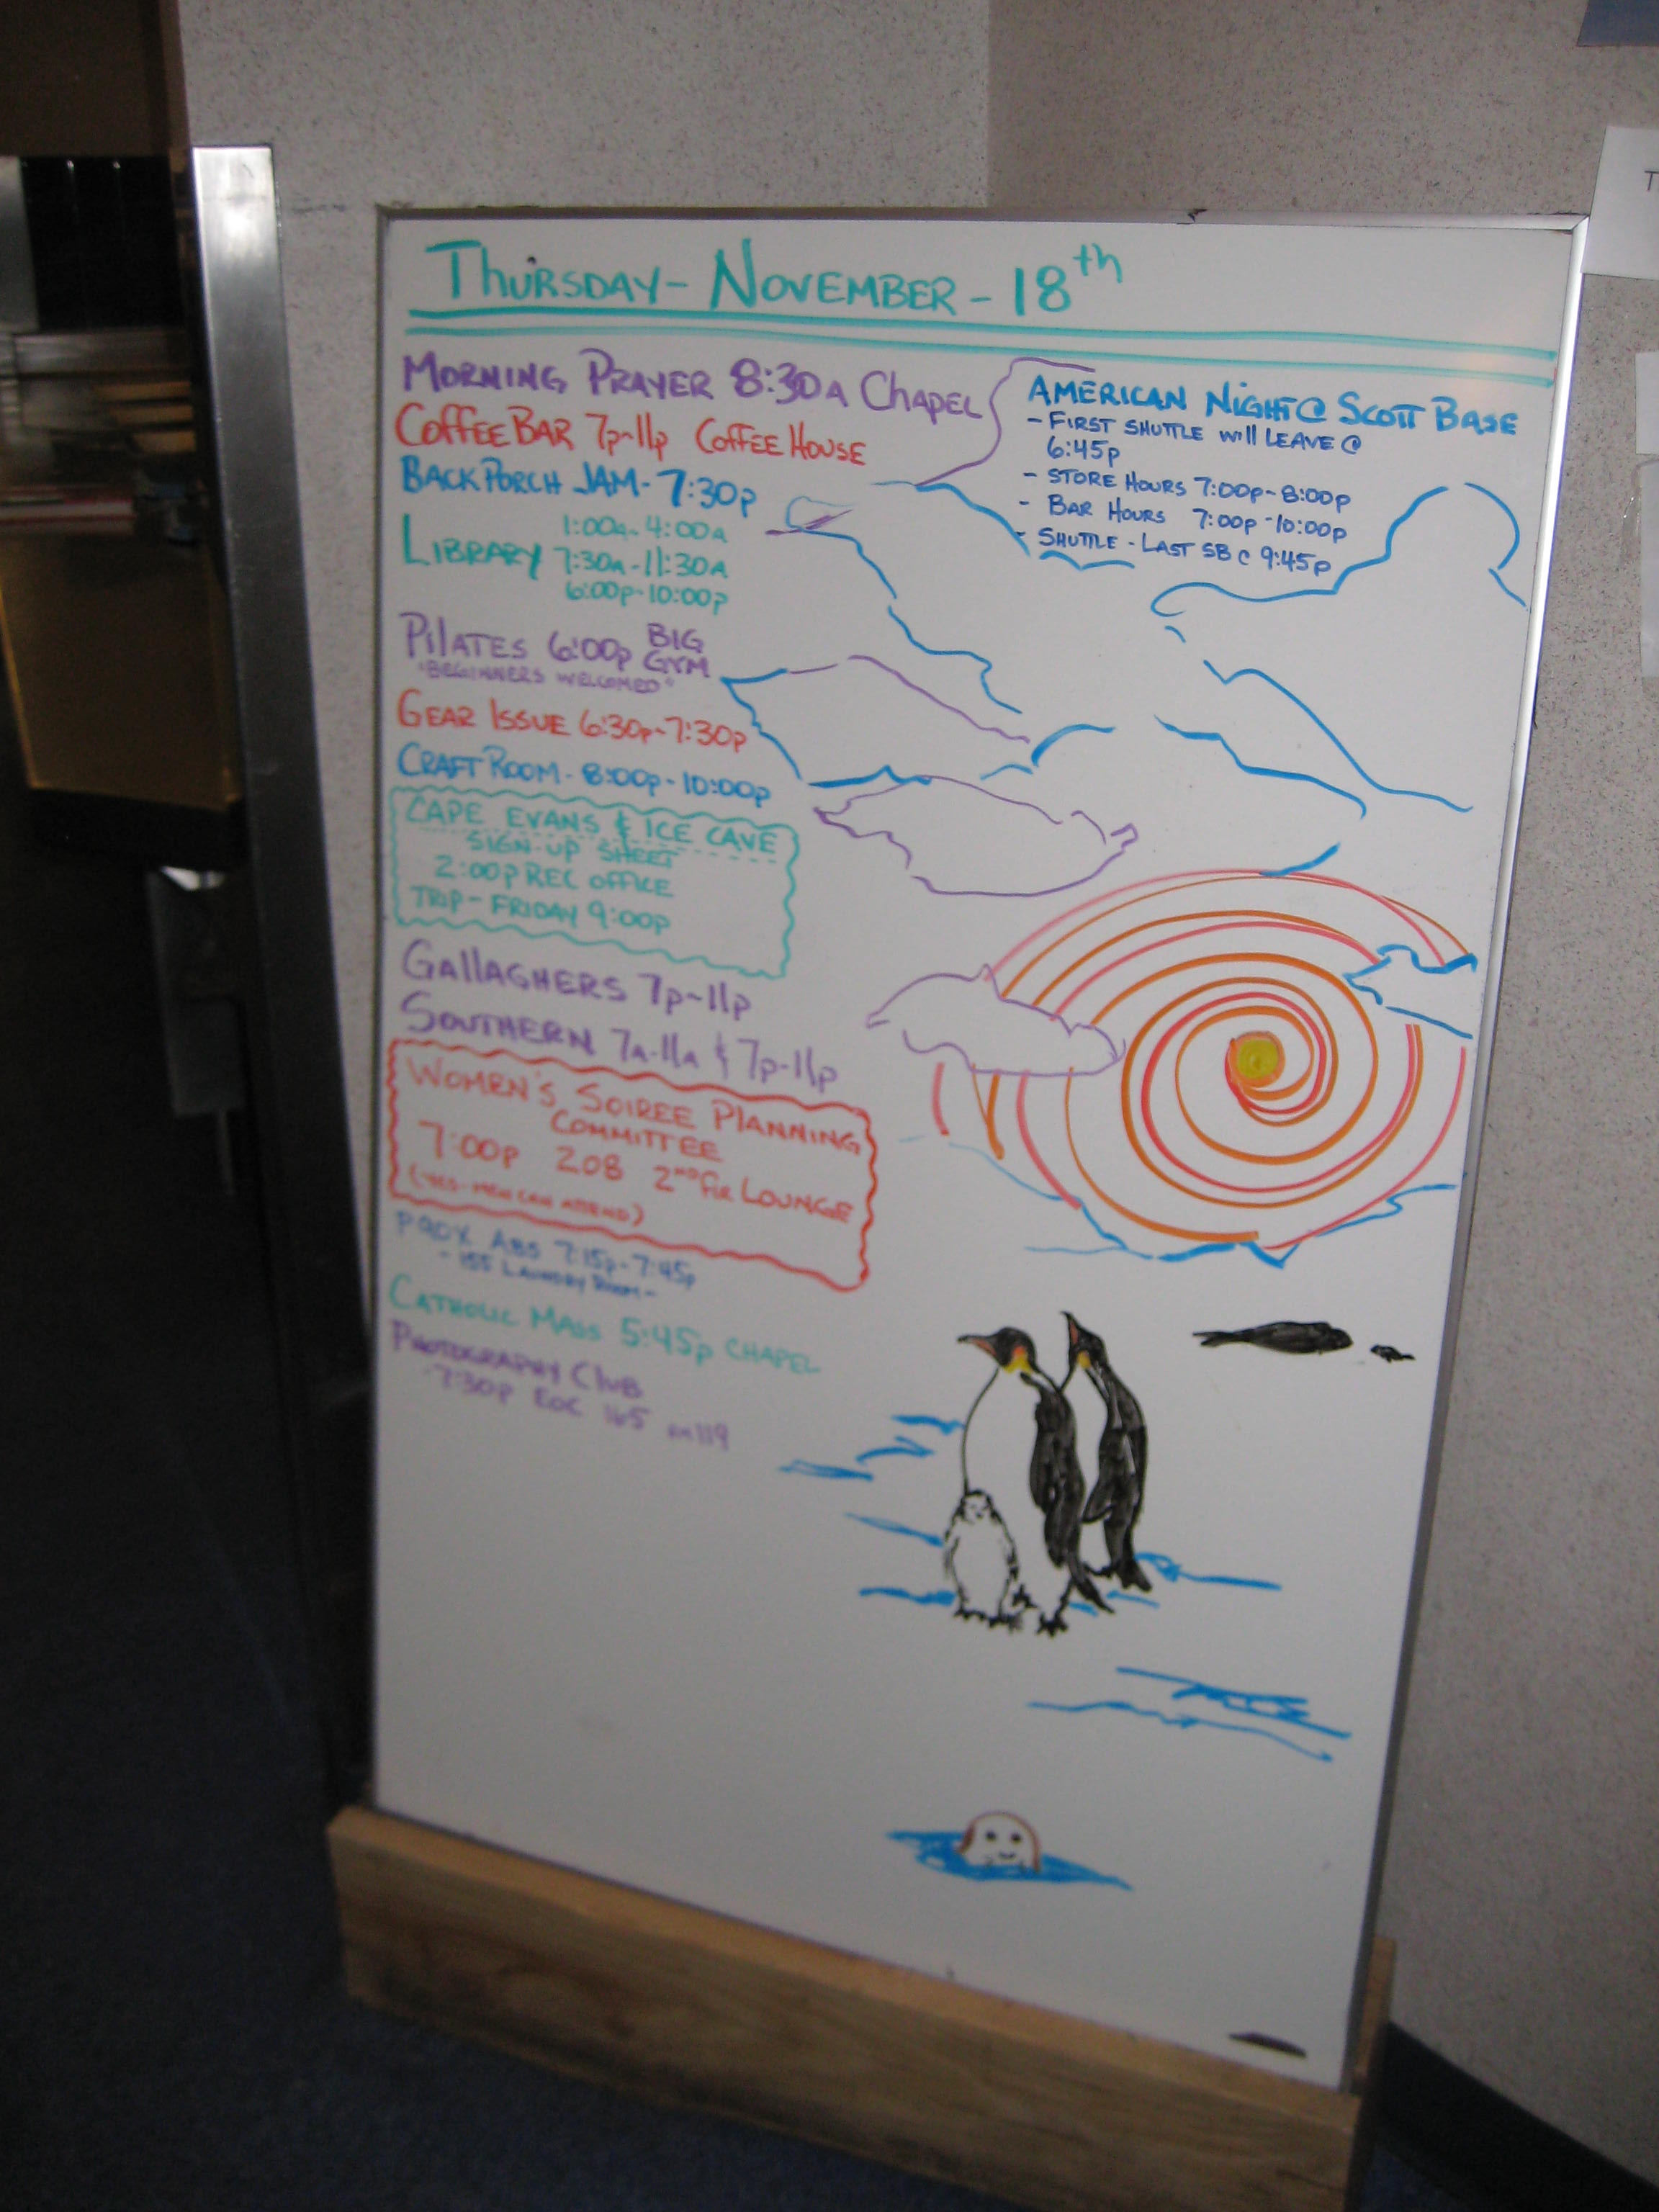 THURSDAY - NOVEMBER - 18th
MORNING PRAYER 8:30A CHAPEL
COFFEE BAR 7p-11p COFFEE HOUSE
BACK PORCH JAM - 7:30p
1:00A-4:00A
LIBRARY 7:30A-11:30A
6:00p-10:00p
PILATES 6:00p BIG GYM
"BEGINNERS WELCOMED"
GEAR ISSUE 6:30p-7:30p
CRAFT ROOM - 8:00p-10:00p
CAPE EVANS & ICE CAVE
SIGN-UP SHEET
2:00p REC OFFICE
TRIP - FRIDAY 9:00p
GALLAGHERS 7p-11p
SOUTHERN 7A-11A & 7p-11p
WOMEN'S SOIREE PLANNING
COMMITTEE
7:00p 208 2ND FLR LOUNGE
(YES-MEN CAN ATTEND)
P90X ABS 7:15p-7:45p
- 155 LAUNDRY ROOM -
CATHOLIC MASS 5:45p CHAPEL
PHOTOGRAPHY CLUB
-7:30p EOC 165 rm119
AMERICAN NIGHT @ SCOTT BASE
- FIRST SHUTTLE WILL LEAVE @
6:45p
- STORE HOURS 7:00p-8:00p
- BAR HOURS 7:00p-10:00p
- SHUTTLE - LAST SB @ 9:45p
T